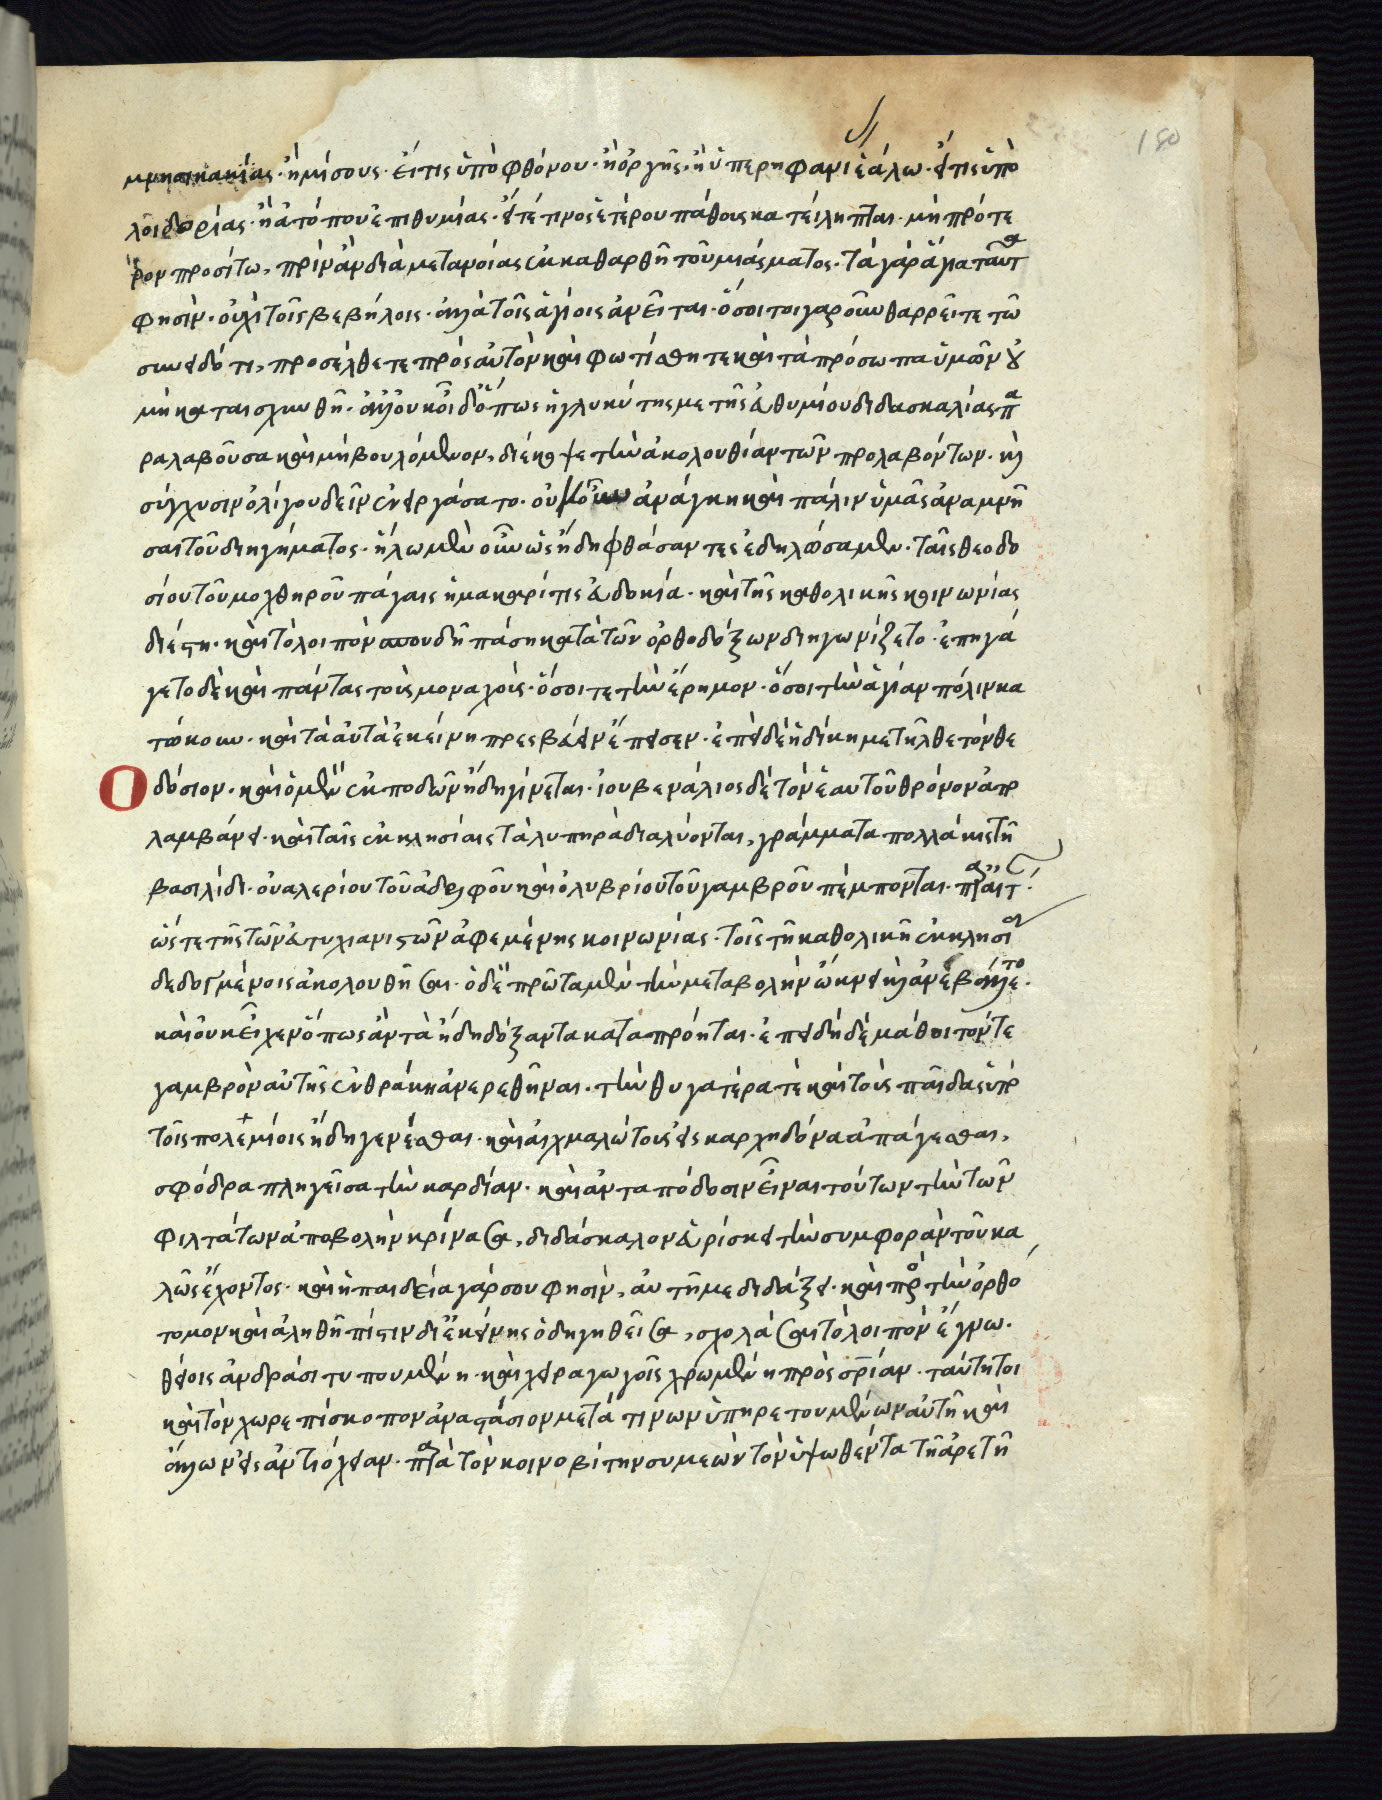 180
μνησικακίας· ἢ μίσους· εἴ τις ὑπὸ φθόνου· ἢ ὀργῆς· ἢ ὑπερηφανι ἑάλω· εἴ τις ὑπὸ
λοιδορίας· ἢ ἀτόπου ἐπιθυμίας· εἴτέ τινος ἑτέρου πάθους κατείληπται· μὴ πρότε
ρον προσίτω, πρὶν ἂν διὰ μετανοίας ἐκκαθαρθῆ τοῦ μιάσματος· τὰ γὰρ ἅγια ταῦτα
φησὶν· οὐχὶ τοῖς βεβήλοις· ἀλλὰ τοῖς ἁγίοις ἀνεῖται· ὅσοι τοιγαροῦν θαρρεῖτε τῶ
συνειδότι, προσέλθετε πρὸς αὐτὸν καὶ φωτίσθητε καὶ τὰ πρόσωπα ὑμῶν οὐ
μὴ καταισχυνθῆ· ἀλλ' οὐκ οἶδ' ὅπως ἡ γλυκύτης με τῆς εὐθυμίου διδασκαλίας πα
ραλαβοῦσα καὶ μὴ βουλόμενον, διέκοψε τὴν ἀκολουθίαν τῶν προλαβόντων· καὶ
σύγχυσιν ὀλίγου δεῖν ἐνειργάσατο· ἀνάγκη καὶ πάλιν ὑμᾶς ἀναμνῆ
σαι τοῦ διηγήματος· ἥλω μὲν οὖν ὡς ἤδη φθάσαντες ἐδηλώσαμεν· ταῖς θεοδο
σίου τοῦ μοχθηροῦ πάγαις ἡ μακαρίτις εὐδοκία· καὶ τῆς καθολικῆς κοινωνίας
διέστη· καὶ τὸ λοιπὸν σπουδῆ πάση κατὰ τῶν ὀρθοδόξων διηγωνίζετο· ἐπηγά
γετο δὲ καὶ πάντας τοὺς μοναχοὺς· ὅσοι τε τὴν ἔρημον· ὅσοι τὴν ἁγίαν πόλιν κα
τώκουν· καὶ τὰ αὐτὰ ἐκείνη πρεσβεύειν ἔπεισεν· ἐπεὶ δὲ ἡ δίκη μετῆλθε τὸν θε
οδόσιον· καὶ ὁ μὲν ἐκποδὼν ἤδη γίνεται· ἰουβενάλιος δὲ τὸν ἑαυτοῦ θρόνον ἀπο
λαμβάνει· καὶ ταῖς ἐκκλησίαις τὰ λυπηρὰ διαλύονται, γράμματα πολλάκις τῆ
βασιλίδι· οὐαλερίου τοῦ ἀδελφοῦ καὶ ὀλυβρίου τοῦ γαμβροῦ πέμπονται·
ὥστε τῆς τῶν εὐτυχιανιστῶν ἀφεμένης κοινωνίας· τοῖς τῆ καθολικῆ ἐκκλησία
δεδογμένοις ἀκολουθῆσαι· ἡ δὲ πρῶτα μὲν τὴν μεταβολὴν ὤκνει καὶ ἀνεβάλλετο·
καὶ οὐκ εἶχεν ὅπως ἂν τὰ ἤδη δόξαντα κατα πρόηται· ἐπειδὴ δὲ μάθοι τόν τε
γαμβρὸν αὐτῆς ἐν θράκη ἀνερεθῆναι· τὴν θυγατέρα τὲ καὶ τοὺς παῖδας ὑπὸ
τοῖς πολεμίοις ἤδη γενέσθαι· καὶ αἰχμαλώτους εἰς καρχηδόνα ἀπάγεσθαι,
σφόδρα πληγεῖσα τὴν καρδίαν· καὶ ἀνταπόδοσιν εἶναι τούτων τὴν τῶν
φιλτάτων ἀποβολὴν κρίνασα, διδάσκαλον εὑρίσκει τὴν συμφορὰν τοῦ κα
λῶς ἔχοντος· καὶ ἡ παιδεία γάρ σου φησὶν, αὐτή με διδάξει· καὶ πρὸς τὴν ὀρθό
τομον καὶ ἀληθῆ πίστιν δι' ἐκείνης ὁδηγηθεῖσα, σχολάσαι τὸ λοιπὸν ἔγνω·
θείοις ἀνδράσι τυπουμένη· καὶ χειραγωγοῖς χρωμένη πρὸς σωτηρίαν· ταύτητοι
καὶ τὸν χωρεπίσκοπον ἀναστάσιον μετά τινων ὑπηρετουμένων αὐτῆ καὶ
ἄλλων εἰς ἀντιόχειαν· παρὰ τὸν κοινοβίτην συμεὼν τὸν ὑψωθέντα τῆ ἀρετῆ